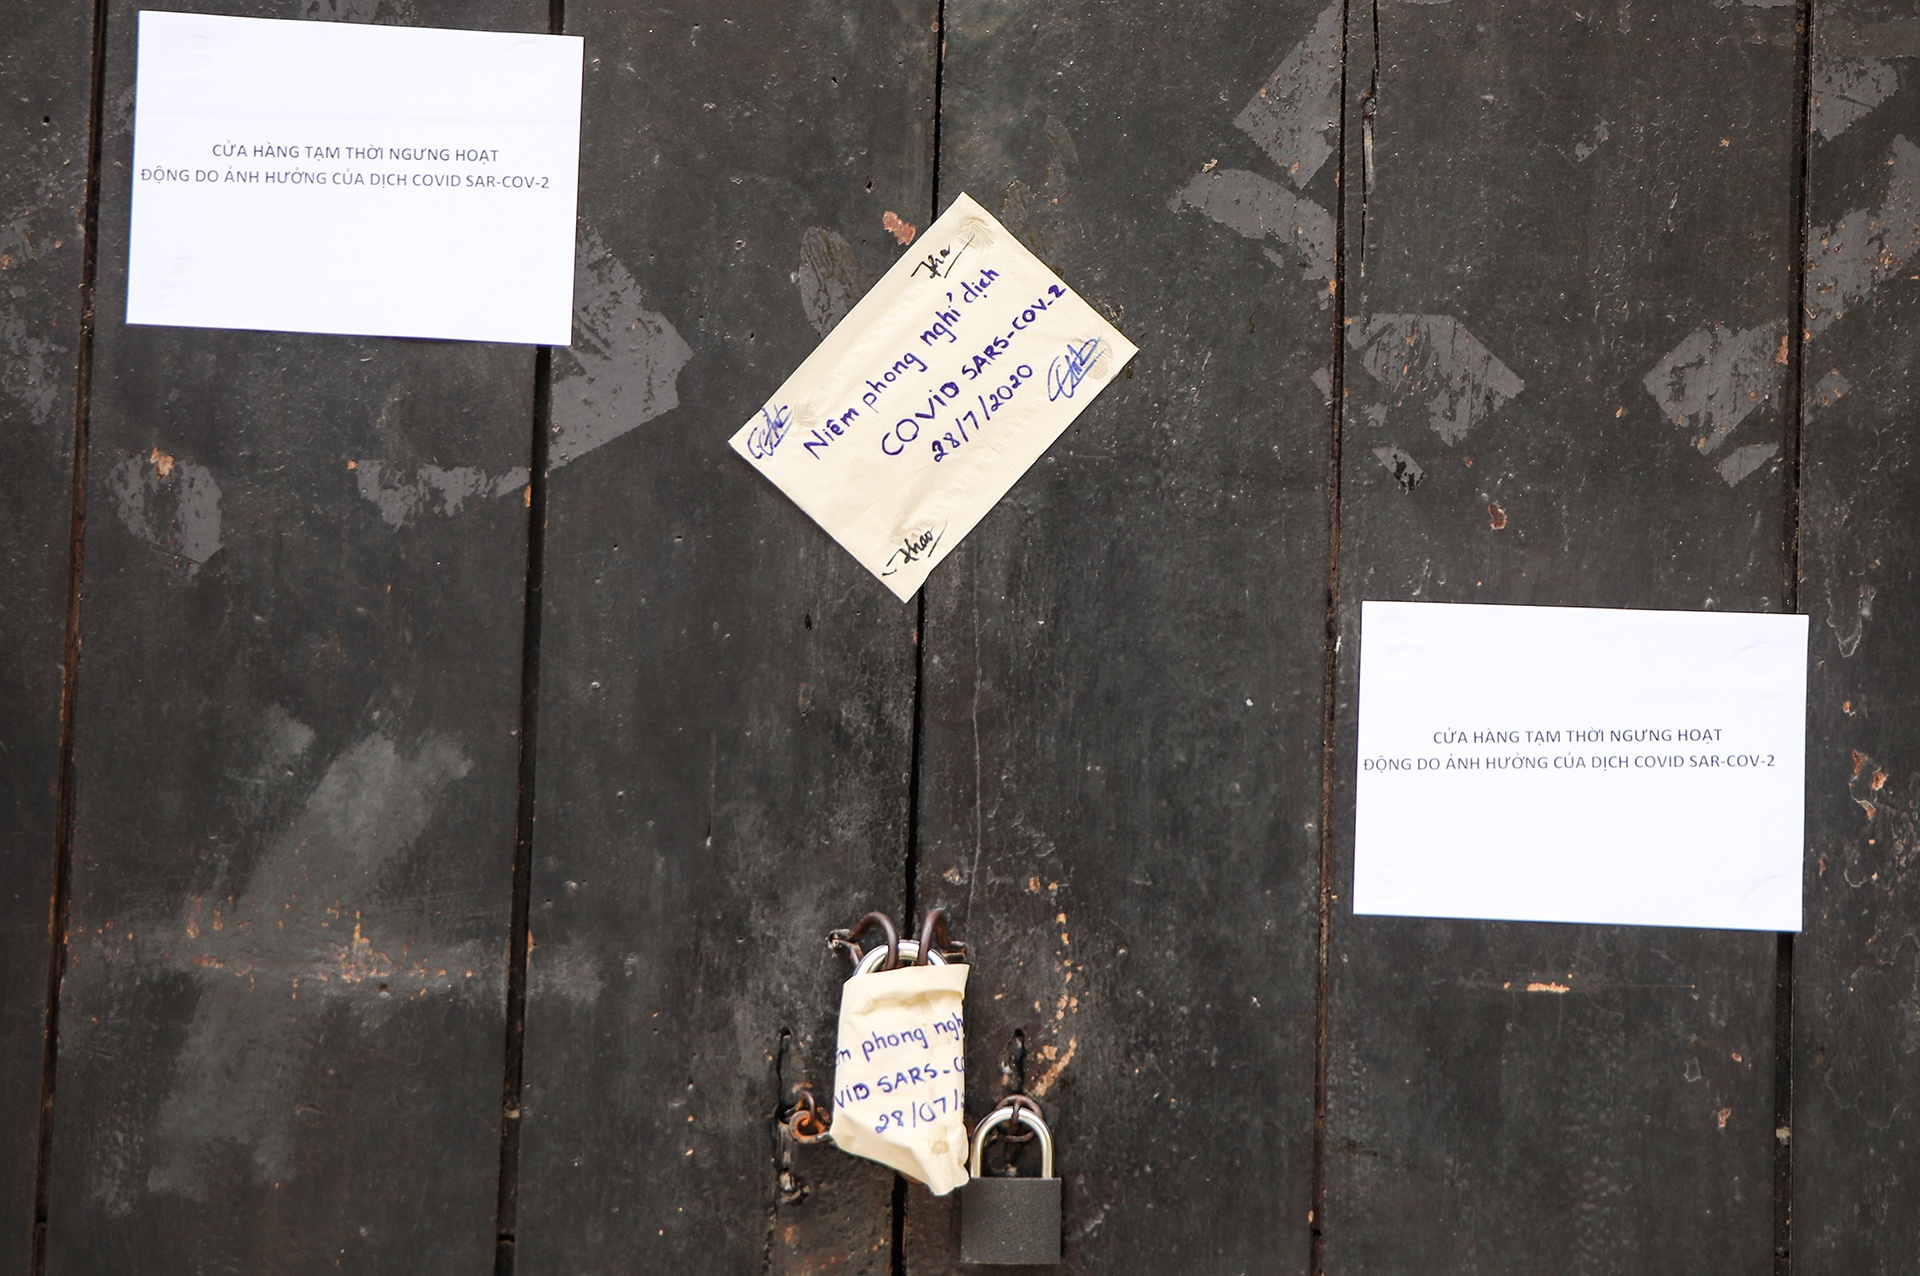 CỬA HÀNG TẠM THỜI NGƯNG HOẠT
ĐỘNG DO ẢNH HƯỞNG CỦA DỊCH COVID SAR-COV-2
Niêm phong nghỉ dịch
COVID SARS-COV-2
28/7/2020
Thao
CỬA HÀNG TẠM THỜI NGƯNG HOẠT
ĐỘNG DO ẢNH HƯỞNG CỦA DỊCH COVID SAR-COV-2
phong
SARS-
28/07/